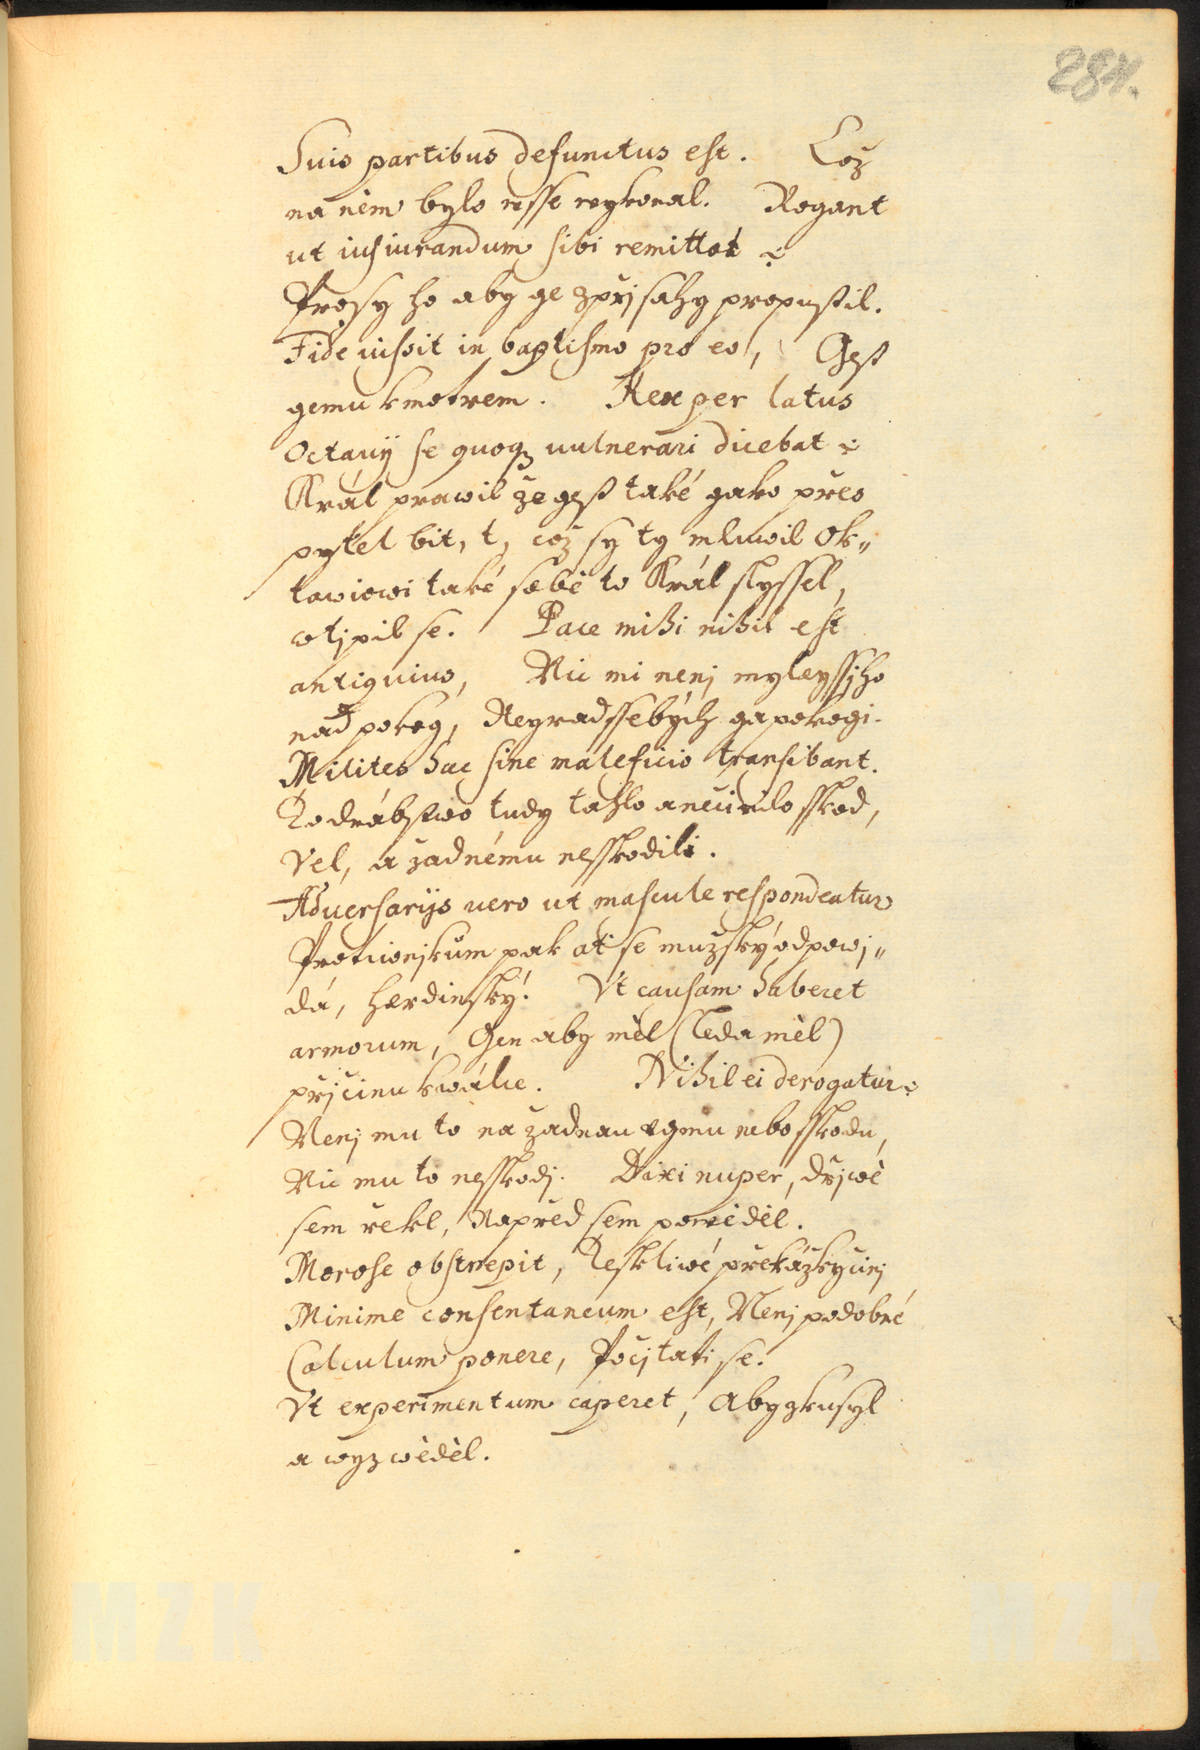 284.
Suis partibus defunctus est. Coz
na něm bylo wsse wykonal. Rogant
ut iusiurandum sibi remittat
Prosy ho aby ge zpřjsahy propustil.
Fide iussit in baptismo pro eo, Gest
gemu kmotrem. Rex per latus
Octavij se quoq; vulnerari dicebat
Král prawil že gest také gako přes
pytel bit, t, coz sy ty mluwil Ok„
tawiowi také sobě to Král slyssel,
wtjpil se. Pace mihi nihil est
antiquius, Nic mi nenj myleyssjho
nad pokog, Neyradssebých gapokogi.
Milites hac sine maleficio transibant.
tudy táhlo a nečinilo sskod,
Vel, a žadnému nesskodili.
Adversarijs vero ut mascule respondeatur
Protiwnjkům pak ať se mužský odpowj„
dá, hrdinský. Vt causam haberet
armorum, Gen aby měl (Teda měl)
přjčinu kwálce. Nihil ei derogatur
Nenj mu to na žadnau ugmu nebo sskodu,
Nic mu to nesskodj. Dixi nuper, dřjwe
sem řekl, Napřed sem powěděl.
Morose obstrepit, Teskliwé překážky činj
Minime consentaneum est, Nenj podobné
Calculum ponere, Počjtati se.
Vt experimentum caperet, Aby zkusyl
a wyzwěděl.
MZK MZK